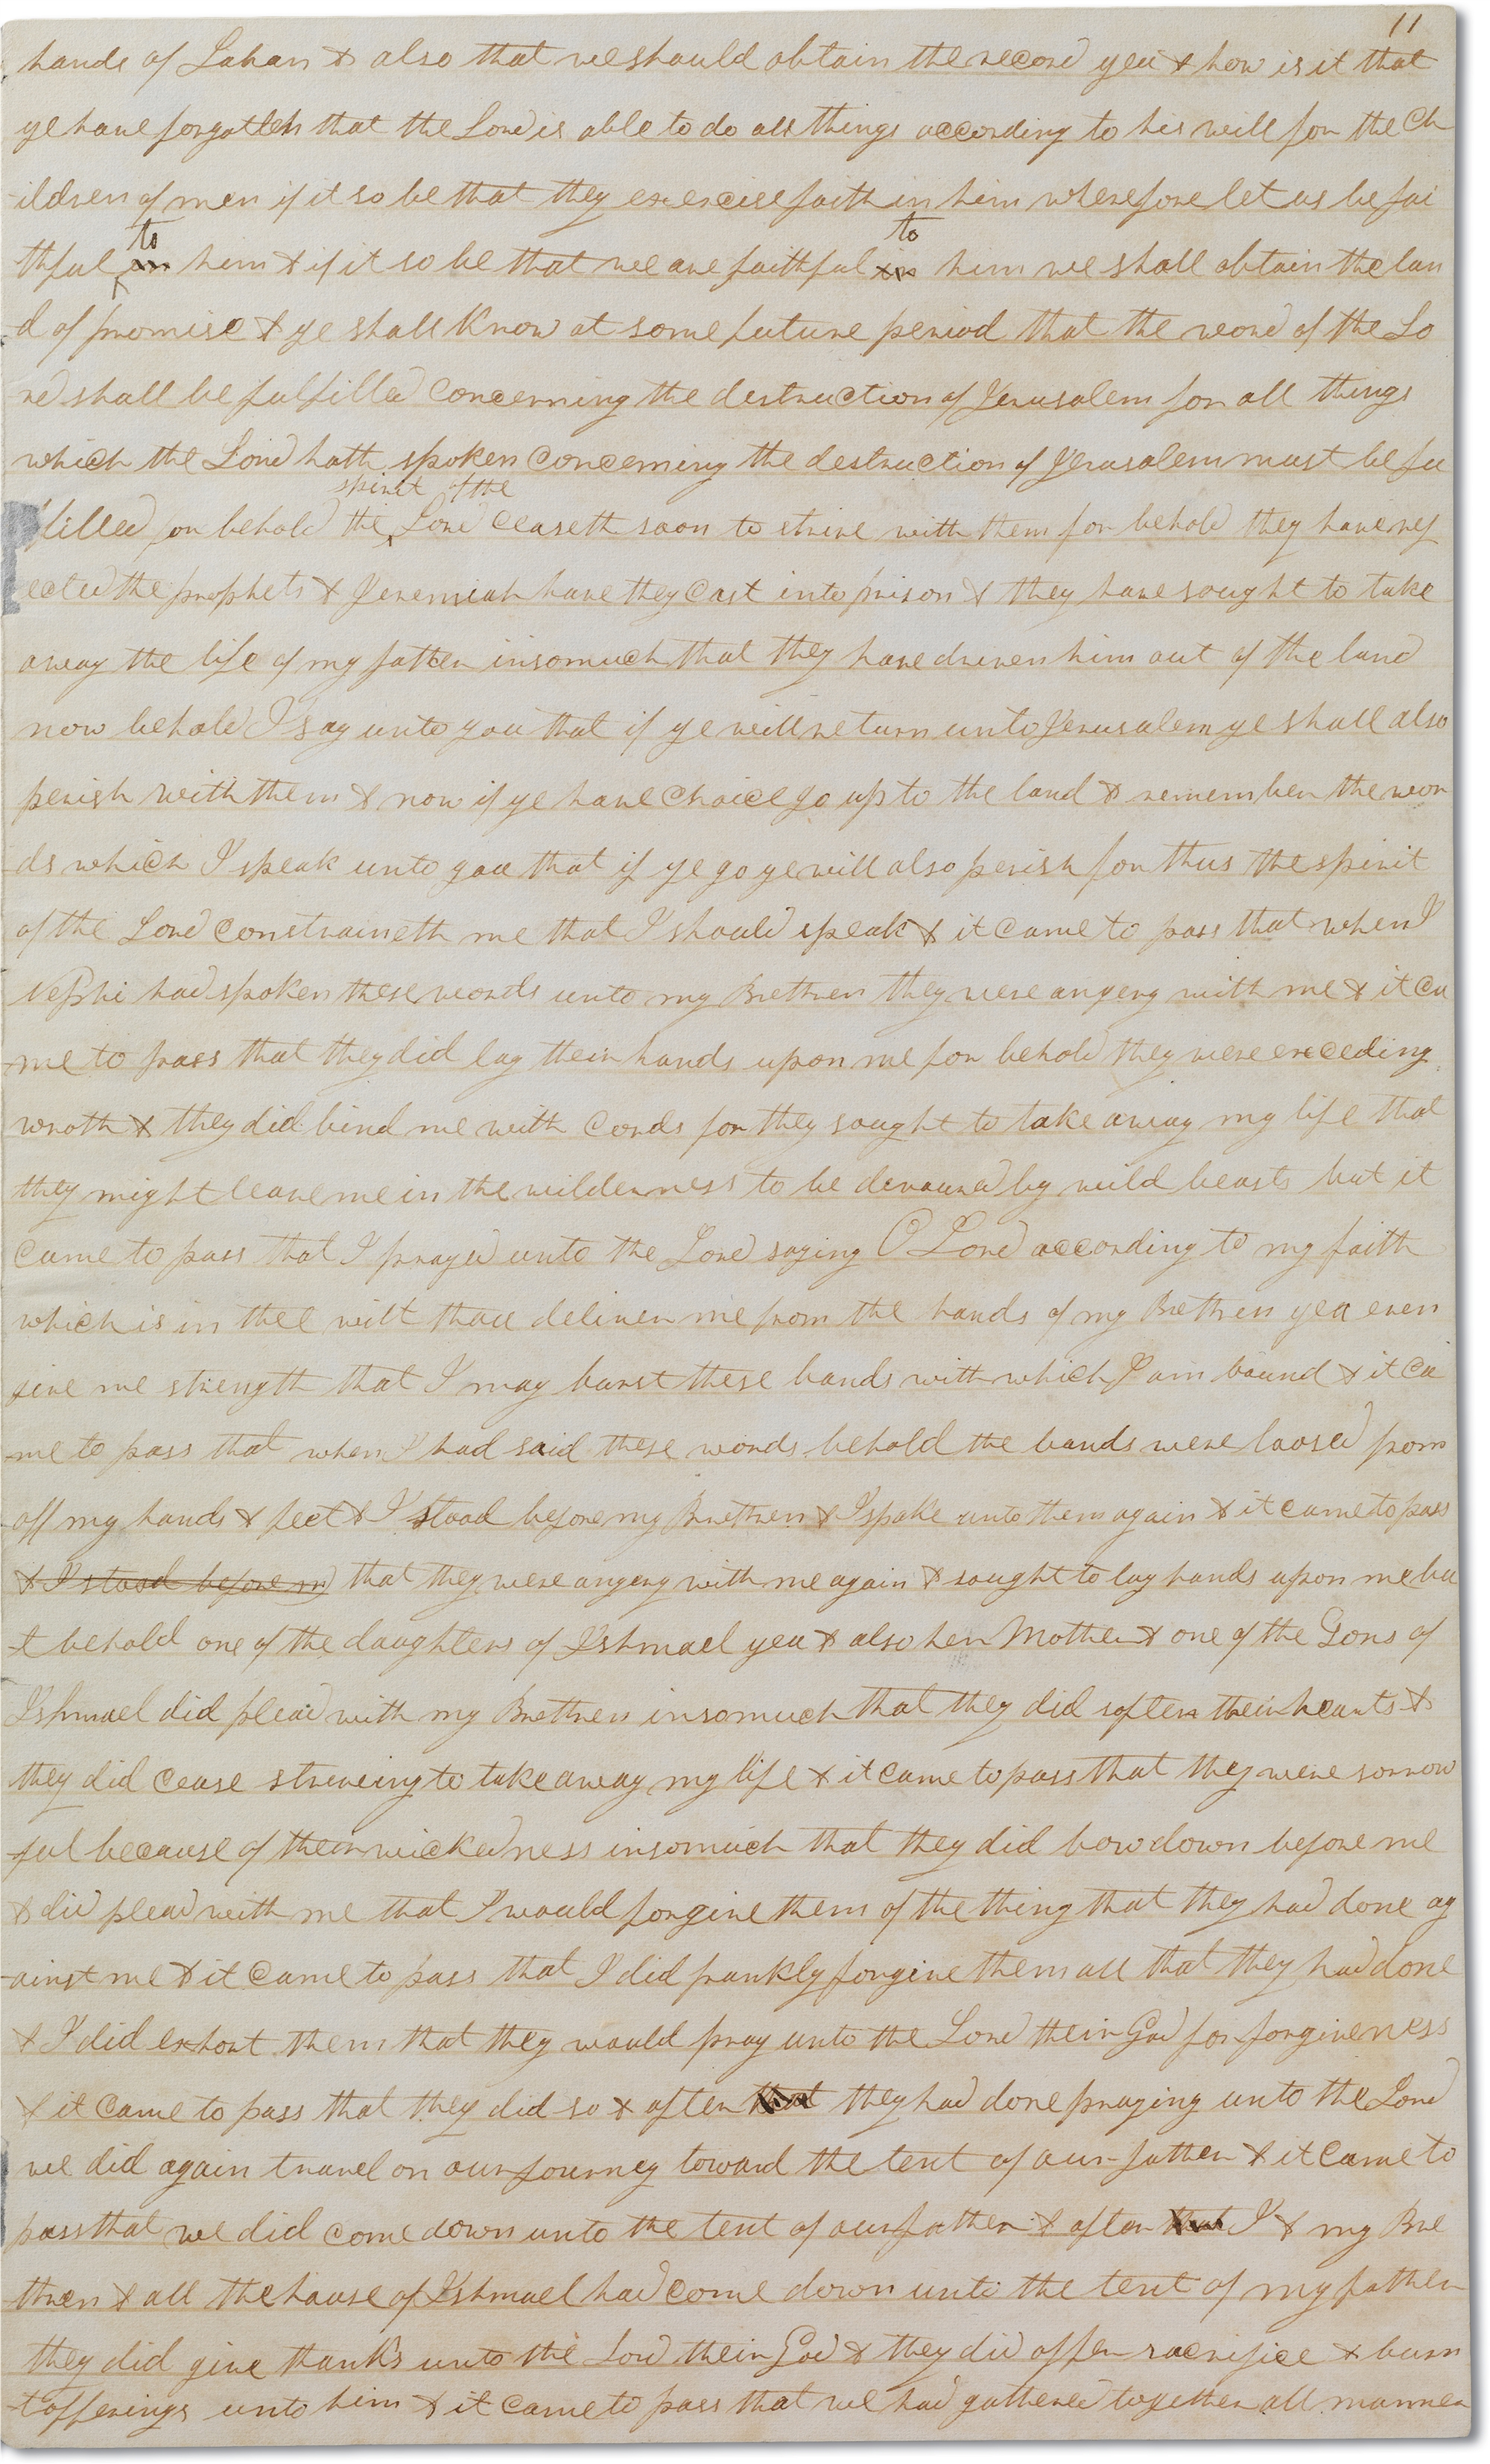 11
hands of Laban & also that we should obtain the record yea & how is it that
ye have forgotten that the Lord is able to do all things according to his will for the Ch
ildren of men if it so be that they exercise faith in him wherefore let us be fai
to to
thful in him & if it so be that we are faithful in him we shall obtain the lan
d of promise & ye shall know at some future period that the word of the Lo
rd shall be fulfilled concerning the destruction of Jerusalem for all things
which the Lord hath spoken concerning the destruction of Jerusalem must be fu
spirit of the
lfilled for behold the Lord ceaseth soon to strive with them for behold they have rej
ected the prophets & Jeremiah have they cast into prison & they have sought to take
away the life of my father insomuch that they have driven him out of the land
now behold I say unto you that if ye will return unto Jerusalem ye shall also
perish with them & now if ye have choice go up to the land & remember the wor
ds which I speak unto you that if ye go ye will also perish for thus the spirit
of the Lord constraineth me that I should speak & it came to pass that when I
Nephi had spoken these words unto my Brethren they were angery with me & it ca
me to pass that they did lay their hands upon me for behold they were exceding
wroth & they did bind me with cords for they sought to take away my life that
they might leave me in the wilderness to be devoured by wild beasts but it
came to pass that I prayed unto the Lord saying O Lord according to my faith
which is in thee wilt thou deliver me from the hands of my Brethren yea even
give me strength that I may burst these bands with which I am bound & it ca
me to pass that when I had said these words behold the bands were loosed from
off my hands & feet & I stood before my Brethren & I spake unto them again & it came to pass
& I stood before m that they were angery with me again & sought to lay hands upon me bu
t behold one of the daughters of Ishmael yea & also her Mother & one of the Sons of
Ishmael did plead with my Brethren insomuch that they did soften their hearts &
they did cease striveing to take away my life & it came to pass that they were sorrow
ful because of their wickedness insomuch that they did bow down before me
& did plead with me that I would forgive them of the thing that they had done ag
ainst me & it came to pass that I did frankly forgive them all that they had done
& I did exhort them that they would pray unto the Lord their God for forgiveness
& it came to pass that they did so & after that they had done praying unto the Lord
we did again travel on our journey toward the tent of our father & it came to
pass that we did come down unto the tent of our father & after that I & my Bre
thren & all the house of Ishmael had come down unto the tent of my father
they did give thanks unto the Lord their God & they did offer sacrifice & burn
t offerings unto him & it came to pass that we had gathered together all manner